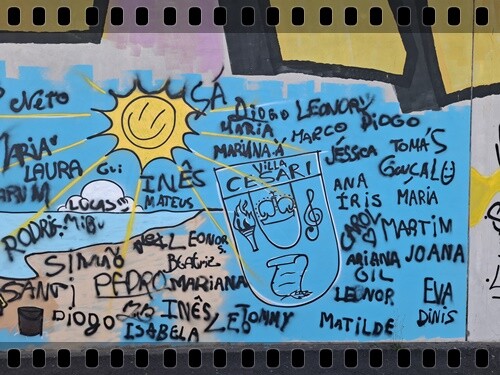 Neto
SÁ
DIOGO LEONOR
MARIA MARCO DIOGO
MARIANA.A
JÉSSICA TOMÁS
MARIA
LAURA Gui
GONÇALO
VILLA
CESARI
INÊS
MATEUS
ANA
ÍRIS MARIA
LUCAS
CAROL
MARTIM
RODRI MiBu
LEONOR
SIMÃO
ARIANA JOANA
BEATRIZ
GIL
SANTI PEDRO MARIANA
LEONOR EVA
DIOGO INÊS
LEO TOMMY
DINIS
ISABELA
MATILDE